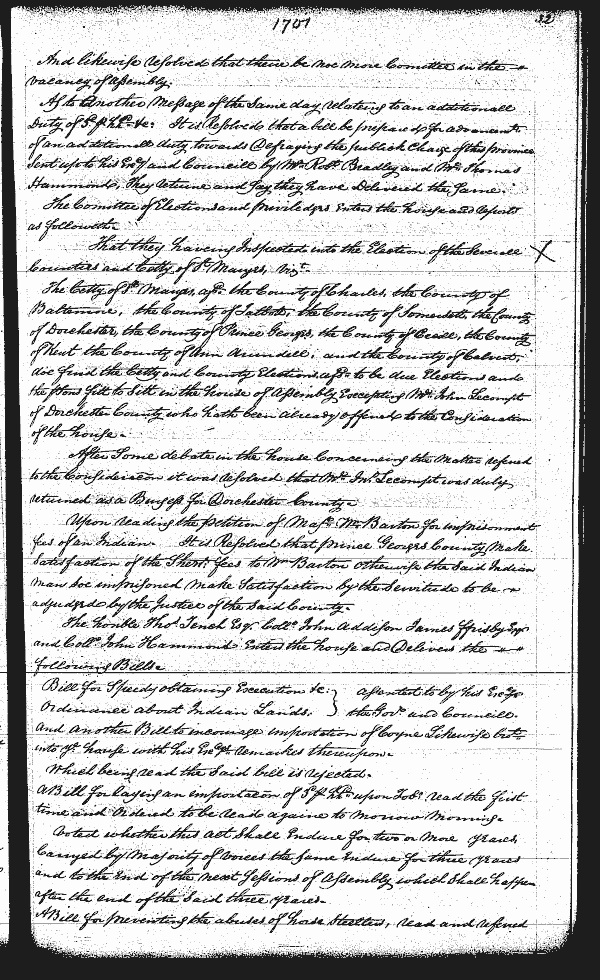 1701
32
And likewise resolved that there be noe more Comittee in the
vacancy of Assembly.
As to Another Message of the Same day relating to an additionall
Duty of &c: It is Resolved that a bill be prepared for advancemt.
of an additionall duty towards Defraying the publick Charge of this province
Sent up to his Exy. and Councill by Mr. Robt. Bradley and Mr. Thomas
Hammond, They returne and Say they have Delivered the Same.
The Comittee of Elections and priviledges Enters the house and reports
as followeth.
That they having Inspected into the Election of the Severall X
Counties and Citty of St. Maryes, Vizt.
The Citty of St. Maryes, afd. the County of Charles, the County of
Baltimore, the County of Talbot, the County of Somersett, the County
of Dorchester, the County of Prince Georges, the County of Cecill, the County
of Kent the County of Ann Arundell, and the County of Calvert,
doe find the Citty and County Elections afd. to be due Elections and
the psons fitt to Sitt in the house of Assembly Excepting Mr. John Lecompt
of Dorchester County who hath been already offered to the Consideration
of the house.
After Some debate in the house Concerning the Matter refered
to the Consideracon it was resolved that Mr. Jno. Lecompt was duly
returned as a Burgess for Dorchester County.
Upon reading the petition of Majr. Wm. Barton for imprisonment
fees of an Indian. It is Resolved that prince Georges County Make
Satisfaction of the Sherr. fees to Wm Barton otherwise the Said Indian
man soe imprisoned make Satisfaction by the Servitude to be
adjudged by the Justice of the Said County.
The honble Thos. Tench Esq. Collo. John Addison James ffrisby Esqr
and Collo. John Hammond Enters the house and Delivers the
following Bills.
Bill for Speedy obtaining Execution &c: } assented to by his Excy.
Ordinance about Indian Lands. } the Govr. and Councill.
And another Bill to encourage importation of Coyne Likewise brot.
into ye. house with his Excys. remarkes thereupon.
Which being read the Said bill is rejected.
A Bill for laying an importacon of upon Tobo. read the first
time and ordered to be read againe to Morrow Morning.
Voted whether this act Shall Endure for two or More years,
Carryed by Majority of voices the Same Endure for three years
and to the End of the next Sessions of Assembly which Shall happen
after the end of the Said three years.
A Bill for preventing the abuses of horse Stealers, read and refered